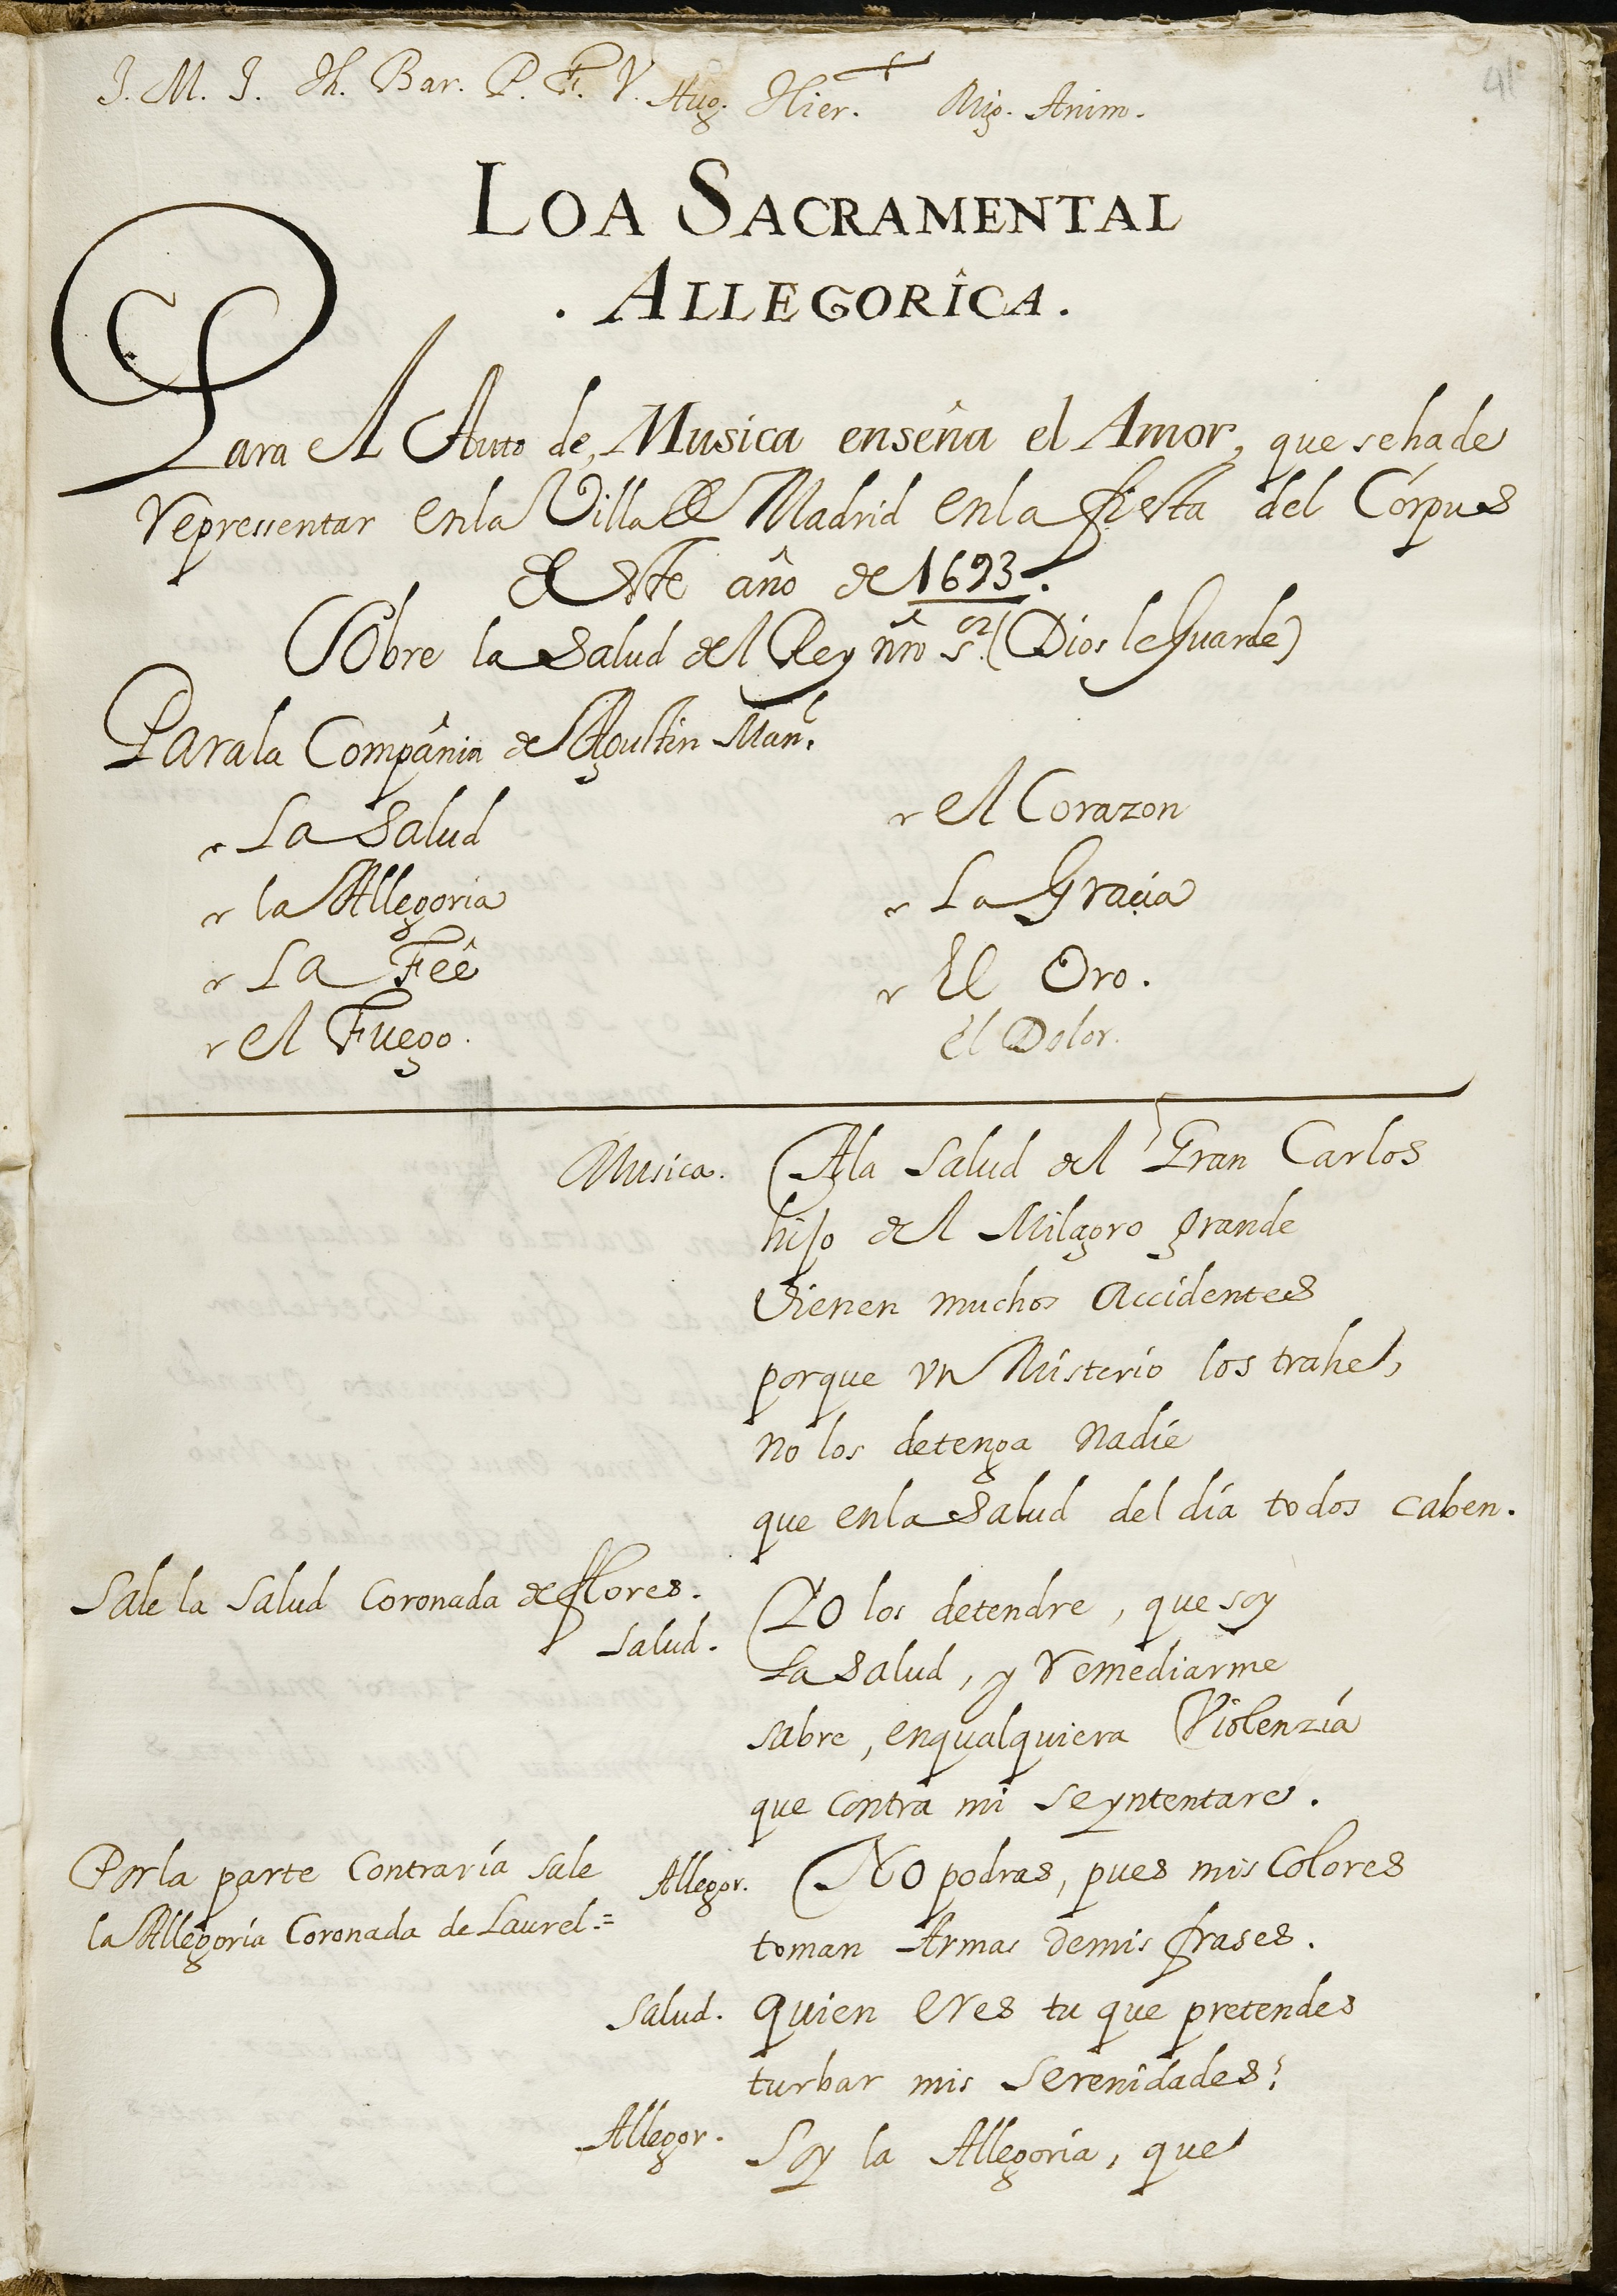 J. M. J. Jh. Bar. P. F. V. Aug. Hier. Mig. Anim.
41
LOA SACRAMENTAL
. ALLEGORÎCA.
Para el Auto de, Musica enseña el Amor, que se ha de
representar en la Villa de Madrid en la fiesta del Córpus
de este año de 1693.
Sobre la Salud del Rey nrô sor. (Dios le Guarde)
Para la Compañia de Agustin Man.l
La Salud
la Allegoria
La Feê
el Fuego.
el Corazon
La Gracia
El Oro.
el Dolor.
Musica. A la Salud del Gran Carlos
hijo del Milagro grande
Vienen muchos Accidentes
porque vn Misterio los trahe,
no los detenga nadie
que en la Salud del día todos caben.
Sale la Salud Coronada de flores.
Salud. Yo los detendre, que soy
La Salud, y remediarme
sabre, en qualquiera Violenzía
que contra mi se yntentare.
Por la parte Contraría sale
la Allegoría Coronada de Laurel.=
Allegor. No podras, pues mis Colores
toman Armas de mis frases.
Salud. quien eres tu que pretendes
turbar mis Serenidades?
Allegor. Soy la Allegoría, que